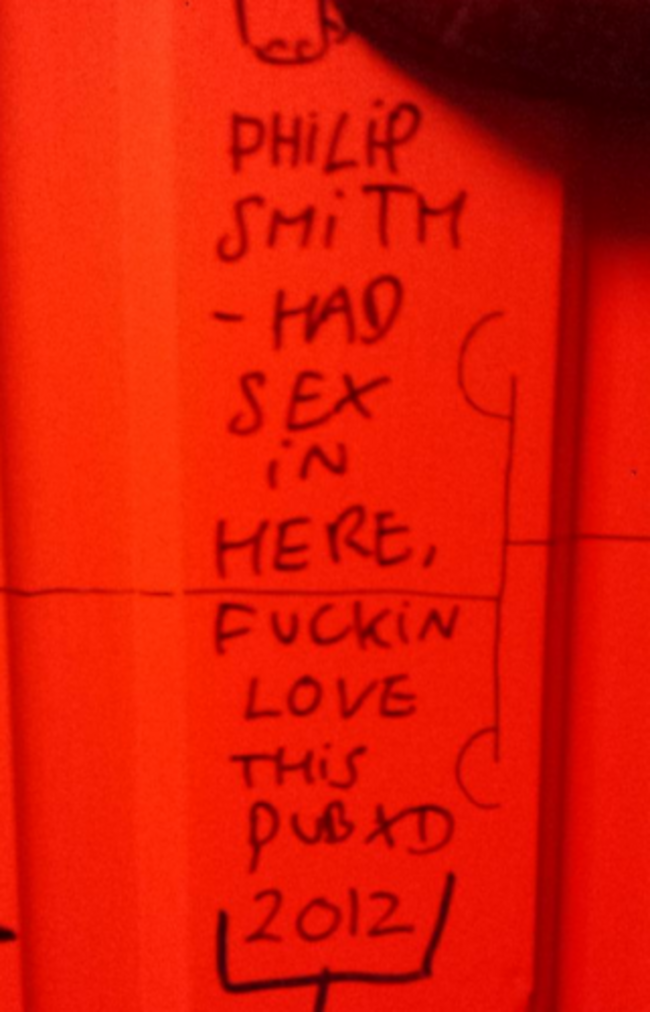 PHiLiP
SMiTH
- HAD
SEX
iN
HERE,
FUCKiN
LOVE
THiS
PUB XD
2012